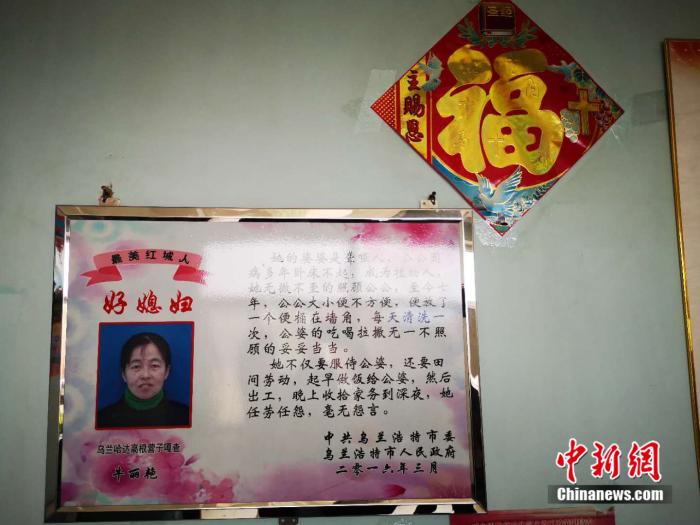 圣经
主赐恩
福
最美红城人
好媳妇
乌兰哈达高根营子嘎查
牛丽艳
她的婆婆是聋哑人，公公因
病多年卧床不起，成为植物人，
她无微不至的照顾公公，至今七
年，公公大小便不方便，便放了
一个便桶在墙角，每天清洗一
次，公婆的吃喝拉撒无一不照
顾的妥妥当当。
她不仅要服侍公婆，还要田
间劳动，起早做饭给公婆，然后
出工，晚上收拾家务到深夜，她
任劳任怨，毫无怨言。
中共乌兰浩特市委
乌兰浩特市人民政府
二〇一六年三月
中新网
Chinanews.com